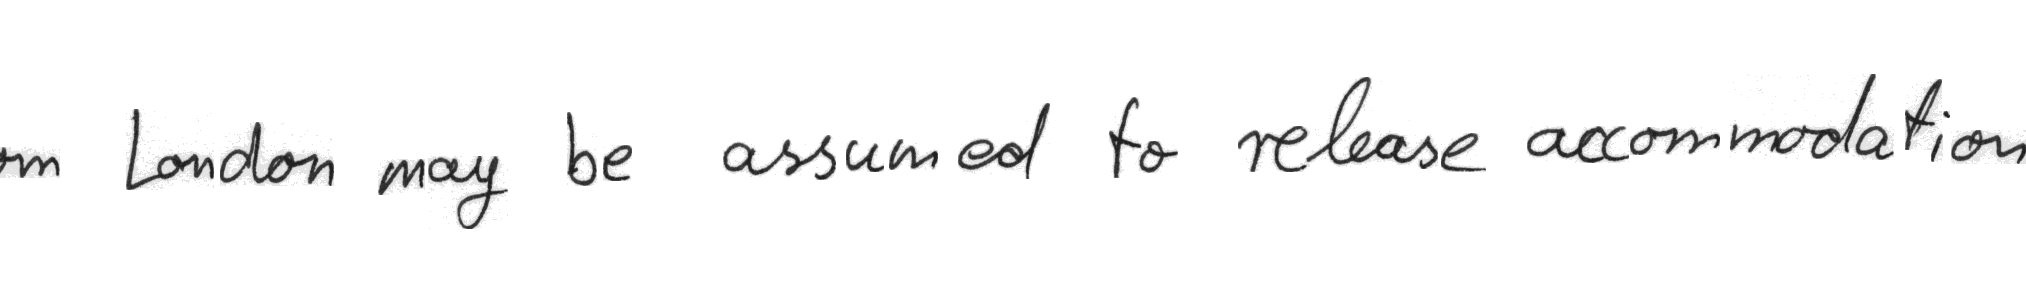 om London may be assumed to release accommodation